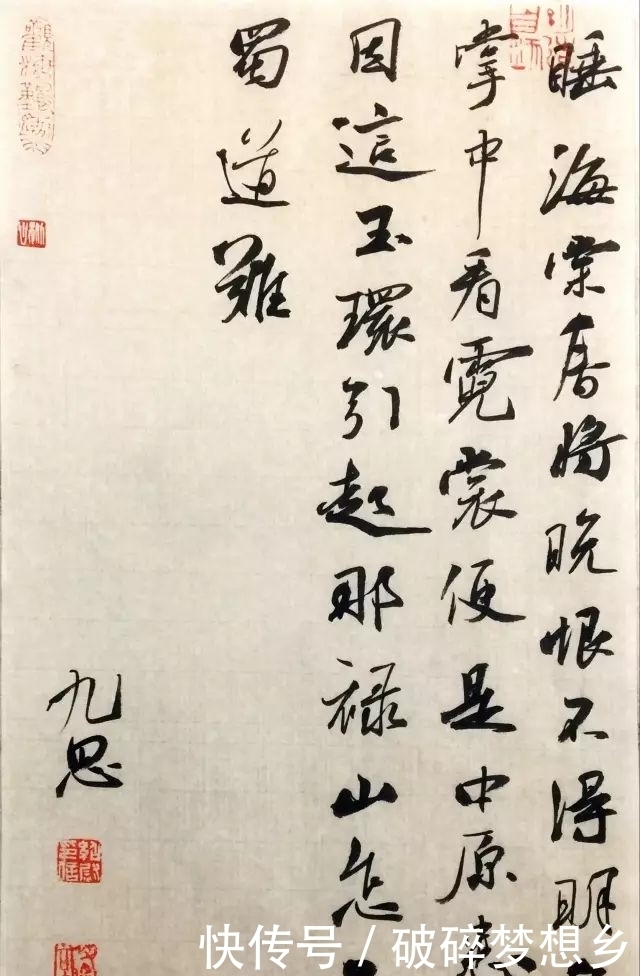 睡海棠春将晚恨不得明
掌中看霓裳便是中原
因這玉環引起那禄山怎
蜀道難
九思
快传号 / 破碎梦想乡